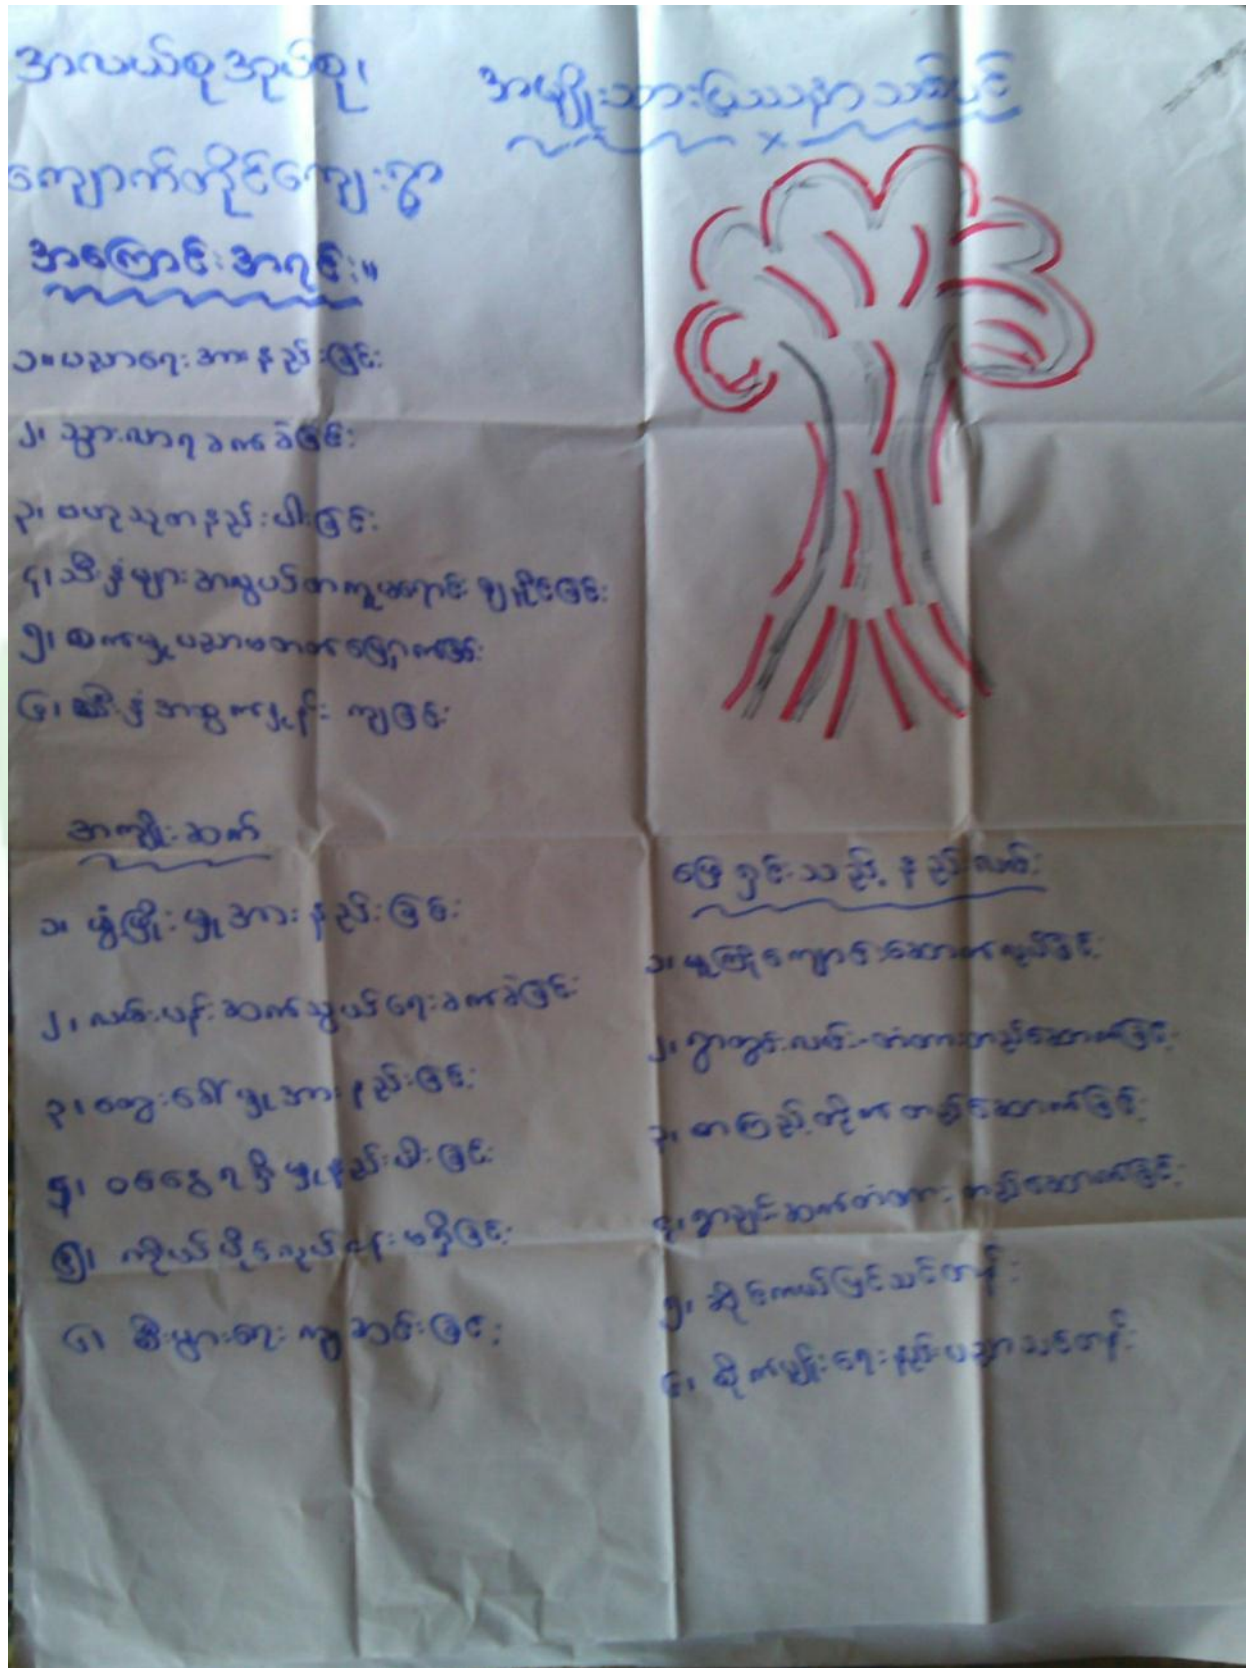 အလယ်စုအုပ်စု၊
အမျိုးသားပြဿနာသစ်ပင်
ကျောက်တိုင်ကျေးရွာ
အကြောင်းအရင်း။
၁။ ပညာရေးအားနည်းခြင်း
၂၊ သွားလာရခက်ခဲခြင်း
၃၊ ဗဟုသုတနည်းပါးခြင်း
၄၊ သီးနှံများအလွယ်တကူမရောင်းချနိုင်ခြင်း
၅၊ စက်မှုပညာမတတ်မြောက်ခြင်း
၆၊ သီးနှံအထွက်နှုန်း ကျခြင်း
အကျိုးဆက်
၁၊ ဖွံ့ဖြိုးမှုအားနည်းခြင်း
၂၊ လမ်းပန်းဆက်သွယ်ရေးခက်ခဲခြင်း
၃၊ တွေးခေါ်မှုအားနည်းခြင်း
၅၊ ဝင်ငွေရရှိမှုနည်းပါးခြင်း
၅၊ ကိုယ်ပိုင်လုပ်ငန်းမရှိခြင်း
၆၊ စီးပွားရေး ကျဆင်းခြင်း
ဖြေရှင်းသည့် နည်းလမ်း
၁၊ မူကြိုကျောင်းဆောက်လုပ်ခြင်း
၂၊ ရွာတွင်းလမ်း-တံတားတည်ဆောက်ခြင်း
၃၊ စာကြည့်တိုက်တည်ဆောက်ခြင်း
၄၊ ရွာချင်းဆက်တံတား တည်ဆောက်ခြင်း
၅၊ ဆိုင်ကယ်ပြင်သင်တန်း
၆၊ စိုက်ပျိုးရေးနည်းပညာသင်တန်း